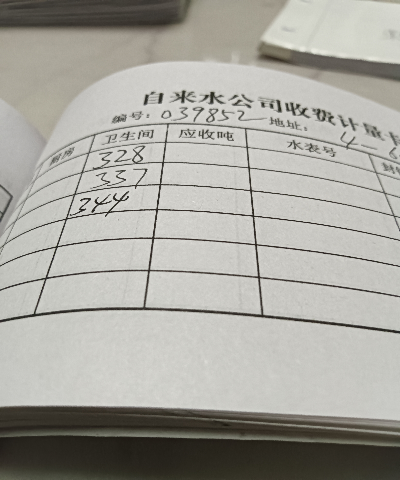 自来水公司收费计量卡
编号：039852 地址：4-8
厨房 卫生间 应收吨 水表号
328
337
344